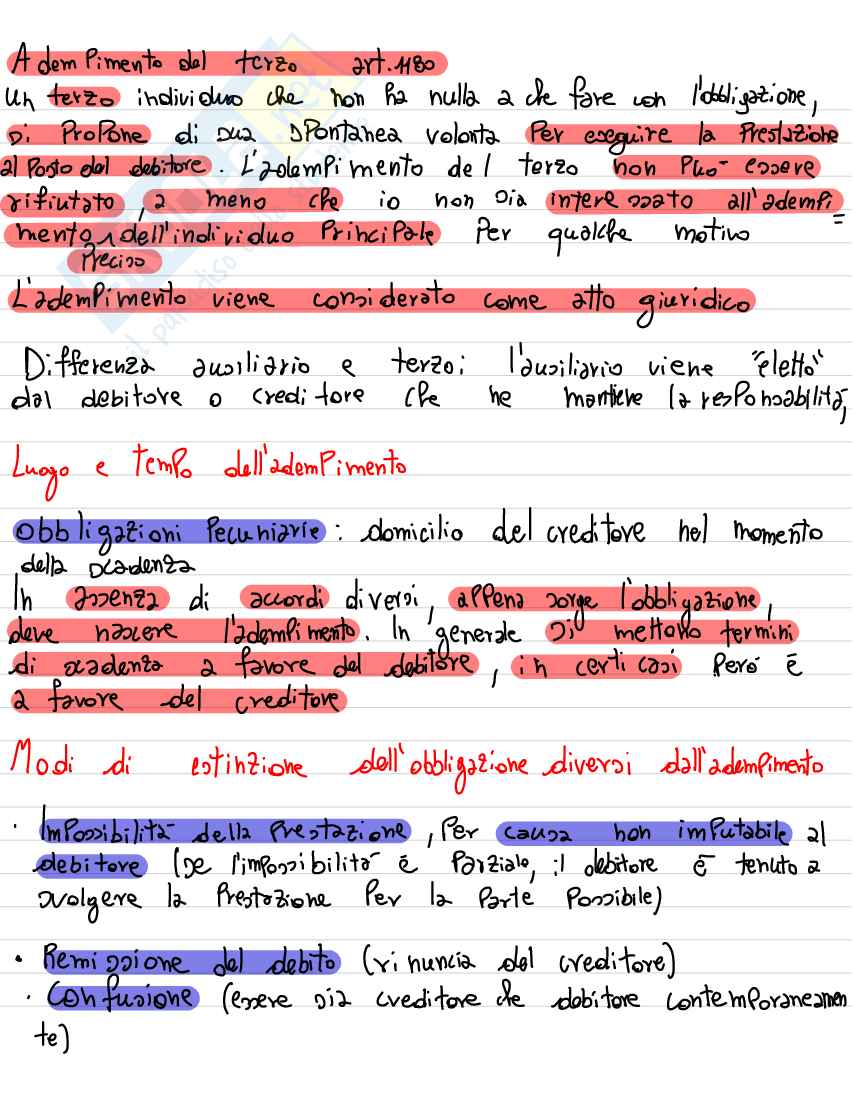 Adempimento del terzo art. 1180
Un terzo individuo che non ha nulla a che fare con l'obbligazione,
si propone di sua spontanea volontà per eseguire la prestazione
al posto del debitore. L'adempimento del terzo non può essere
rifiutato, a meno che io non sia interessato all'adempi=
mento dell'individuo principale per qualche motivo
preciso
L'adempimento viene considerato come atto giuridico
Differenza ausiliario e terzo: l'ausiliario viene "eletto"
dal debitore o creditore che ne mantiene la responsabilità,
Luogo e tempo dell'adempimento
Obbligazioni pecuniarie: domicilio del creditore nel momento
della scadenza
In assenza di accordi diversi, appena sorge l'obbligazione,
deve nascere l'adempimento. In generale si mettono termini
di scadenza a favore del debitore, in certi casi però è
a favore del creditore
Modi di estinzione dell'obbligazione diversi dall'adempimento
· Impossibilità della prestazione, per causa non imputabile al
debitore (se l'impossibilità è parziale, il debitore è tenuto a
svolgere la prestazione per la parte possibile)
· Remissione del debito (rinuncia del creditore)
· Confusione (essere sia creditore che debitore contemporaneamen
te)